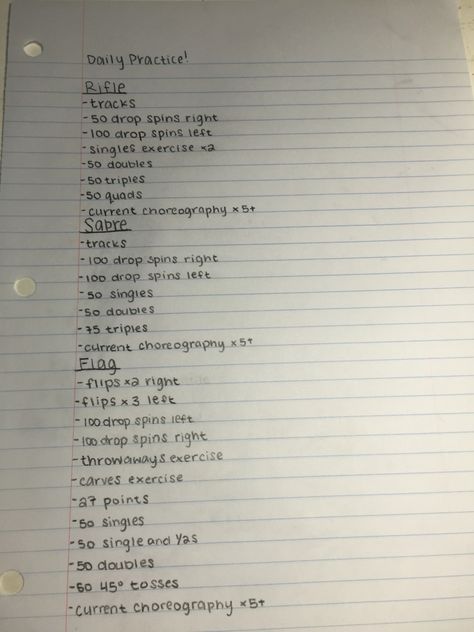 Daily Practice!
Rifle
-tracks
-50 drop spins right
-100 drop spins left
-singles exercise x2
-50 doubles
-50 triples
-50 quads
-current choreography x5+
Sabre
-tracks
-100 drop spins right
-100 drop spins left
-50 singles
-50 doubles
-75 triples
-current choreography x5+
Flag
-flips x2 right
-flips x3 left
-100 drop spins left
-100 drop spins right
-throwaways exercise
-carves exercise
-27 points
-50 singles
-50 single and 1/2s
-50 doubles
-50 45° tosses
-current choreography x5+